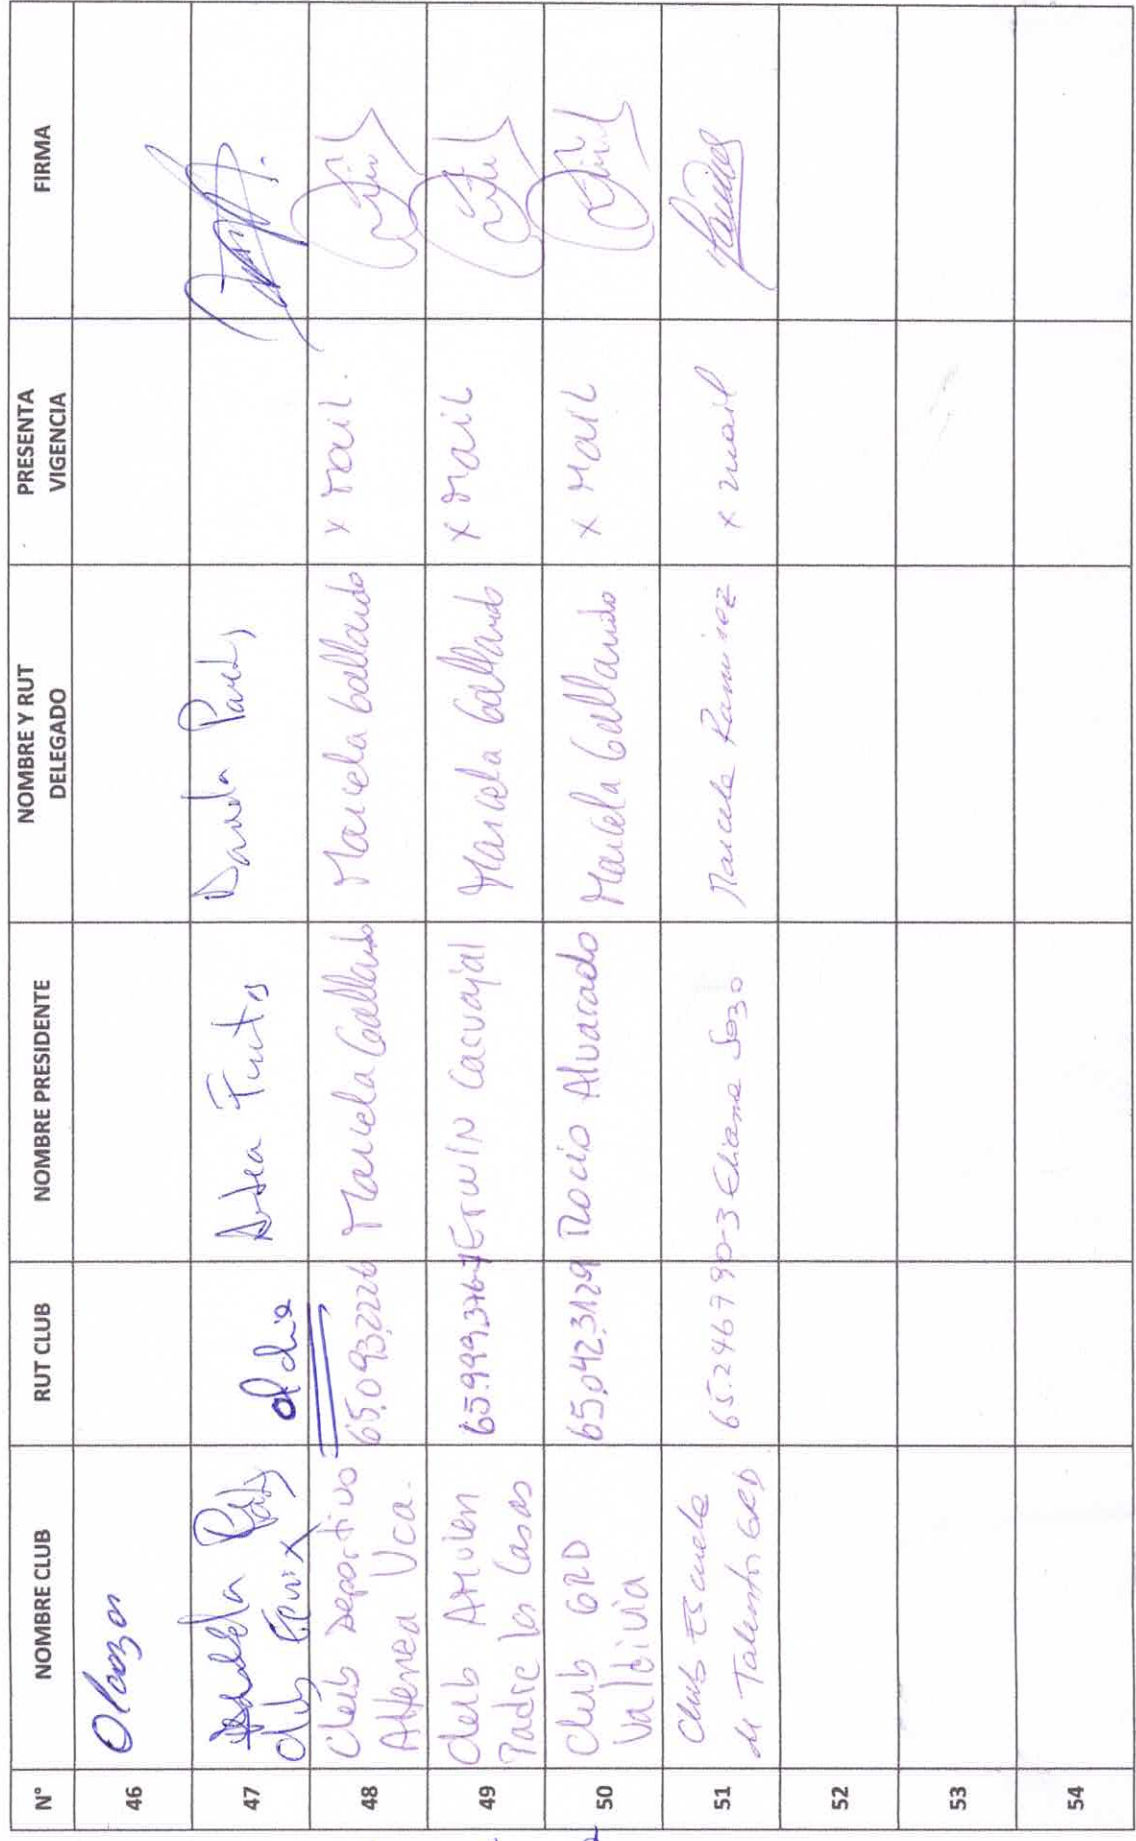 N° NOMBRE CLUB RUT CLUB NOMBRE PRESIDENTE NOMBRE Y RUT DELEGADO PRESENTA VIGENCIA FIRMA
46
47 Club Fenix
48 Club Deportivo Atenea Vca. 65.093.2226 Marcela Gallardo Marcela Gallardo x mail.
49 Club Amulen Padre las Casas Erwin Carvajal Marcela Gallardo x Mail
50 Club GRD Valdivia 65.042.3129 Rocio Alvarado Marcela Gallardo x Mail
51 Club Escuela de Talentos GRD 65.246790-3 Eliana Sozo Marcela Ramirez x mail
52
53
54